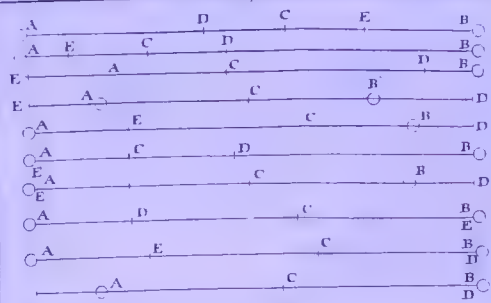 A D C E B
A E C D B
E A C D B
E A C B D
A E C B D
A C D B
E
A C B D
E
A D C B
E
A E C B
D
A C B
D